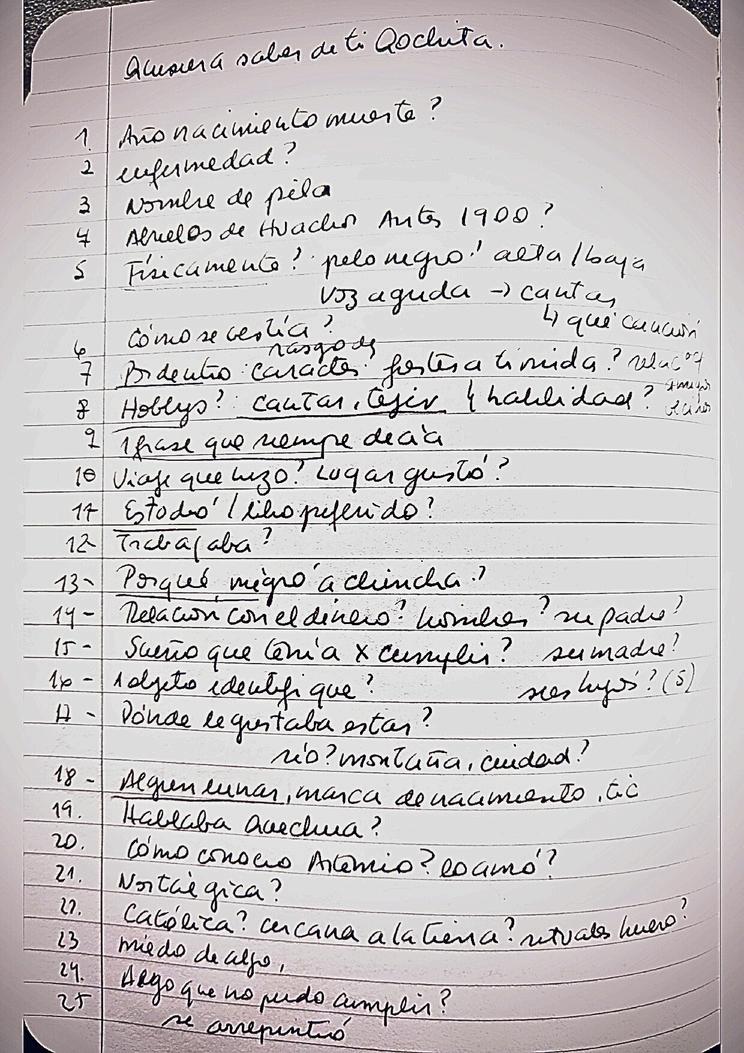 Quisiera saber de ti Qochita.
1. Año nacimiento muerte?
2 enfermedad?
3 Nombre de pila
4 Abuelos de Huachos Antes 1900?
5 Físicamente? pelo negro? alta/baja
voz aguda → cantar
↳ qué canción
6 Cómo se vestía?
rasgo de
7 Por dentro: carácter: fiestera tímida? relac
8 Hobbys? cantar, tejer habilidad?
9 1 frase que siempre decía
10 Viaje que hizo? Lugar gustó?
11 Estudió / libro preferido?
12- Trabajaba?
13- Porqué migró a chincha?
14- Relación con el dinero? hombres? su padre?
15- Sueño que tenía x cumplir? su madre?
16- 1 objeto identifique? sus hijos? (5)
17- Dónde le gustaba estar?
río? montaña, ciudad?
18- Algun lunar, marca de nacimiento, tic
19. Hablaba Quechua?
20. Cómo conoció Artemio? lo amó?
21. Nostálgica?
22. Católica? cercana a la tierra? rituales huevo?
23 miedo de algo,
24. Algo que no pudo cumplir?
25 se arrepintió